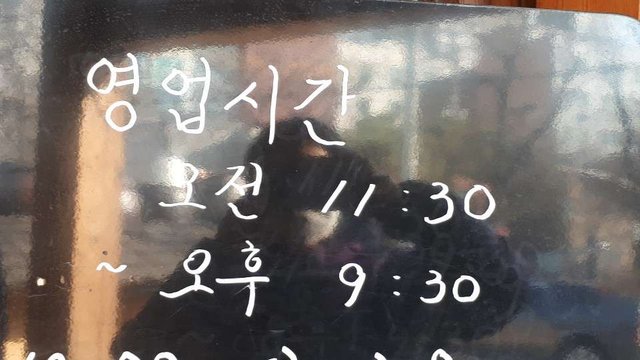 영업시간
오전 11:30
~ 오후 9:30